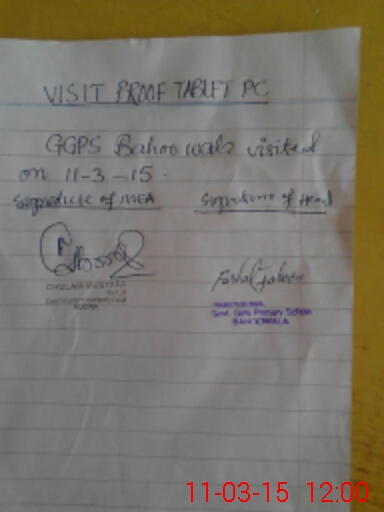 VISIT PROOF TABLET PC
GGPS Bahoo wala visited
on 11-3-15.
Signature of MEA Signature of Head
GHULAM MUSTAFA
Govt. Girls Primary School
11-03-15 12:00